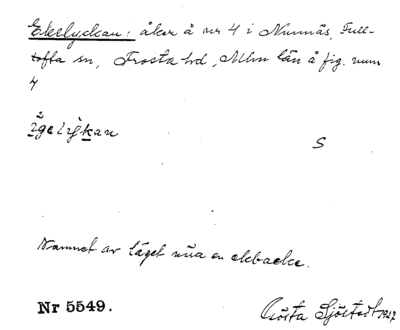 Ekelyckan: åker å nr 4 i Nunnäs, Full-
tofta sn, Frosta hd, Mlm län å fig. num
4
S
Namnet av läget nära en ekbacke.
Nr 5549.
Gösta Sjöstedt 1927